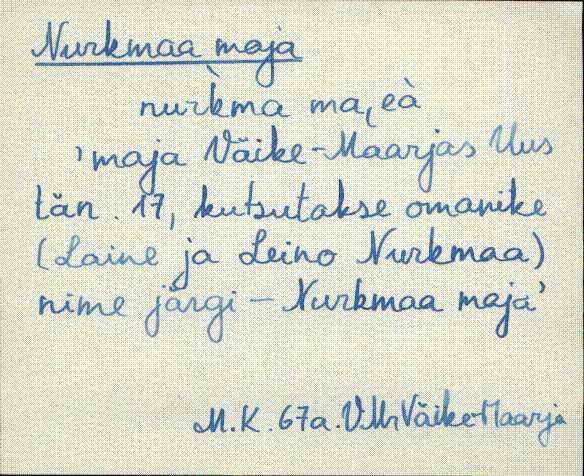 Nurkmaa maja
nur̀kma ma͔eà
'maja Väike-Maarjas Uus
tän. 17, kutsutakse omanike
(Laine ja Leino Nurkmaa)
nime järgi – Nurkmaa maja'
M.K. 67a. VMr Väike-Maarja